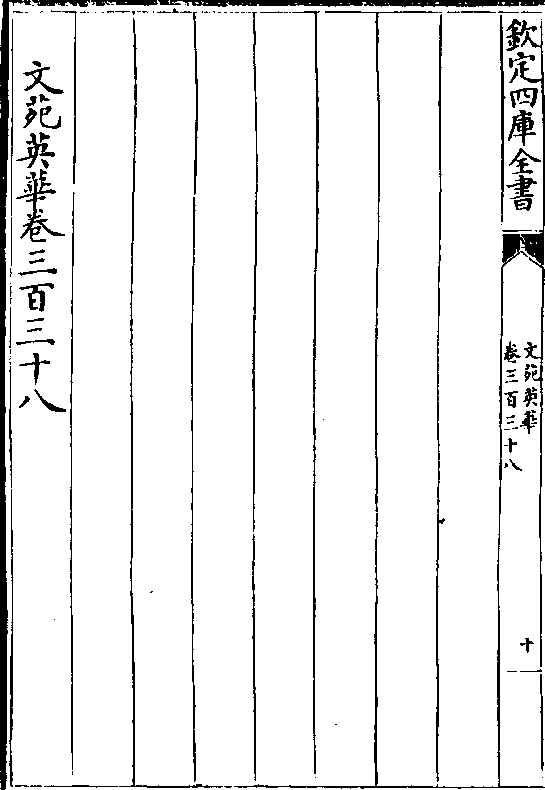 欽定四庫全書
文苑英華
卷三百三十八
十
文苑英華卷三百三十八